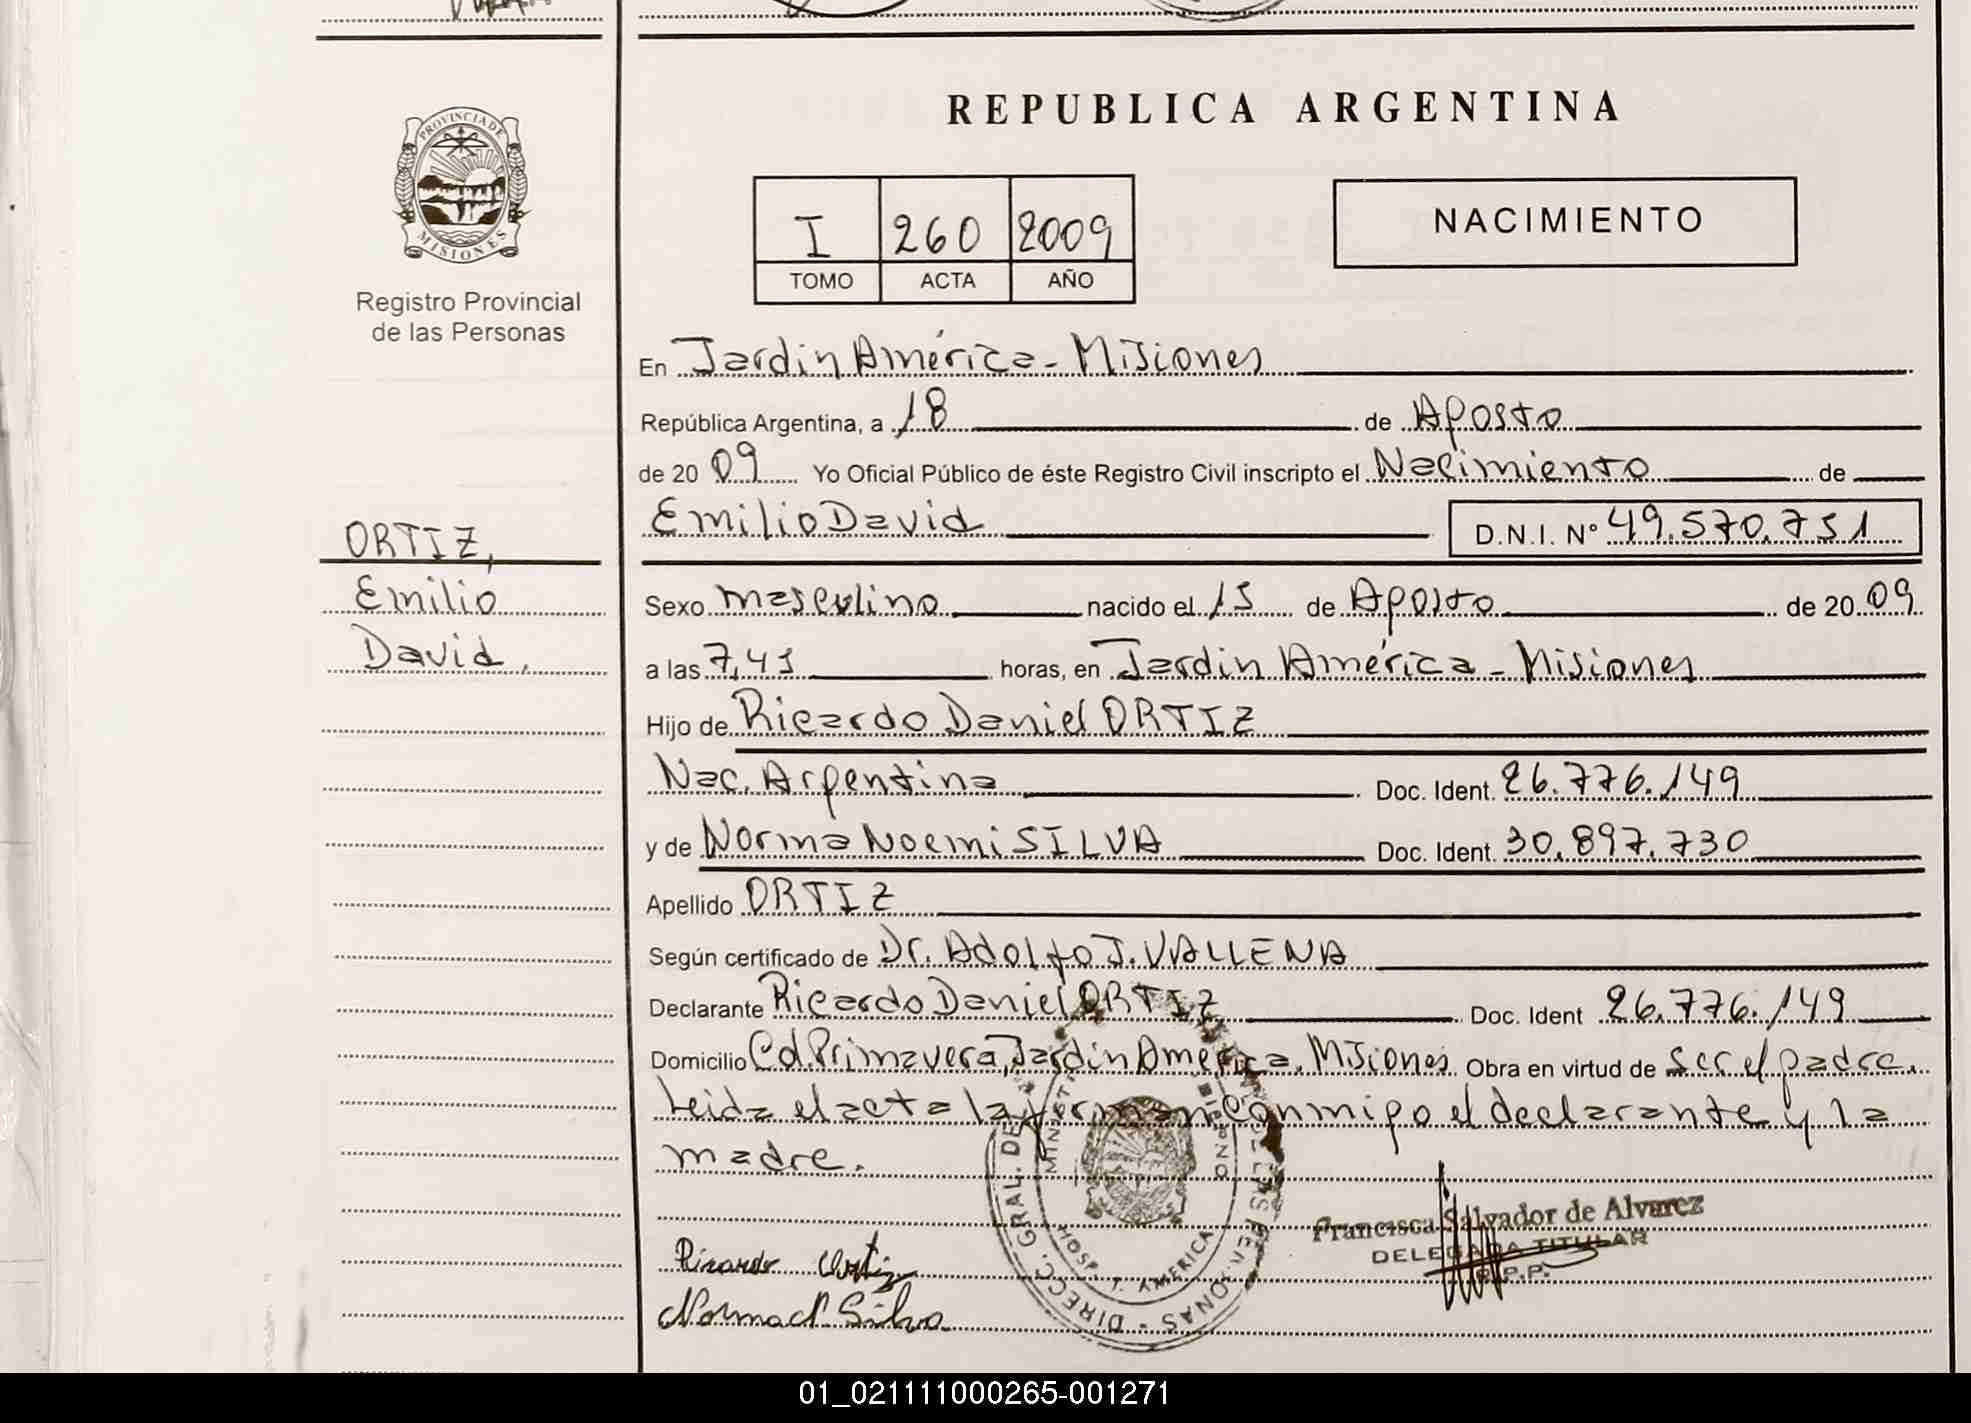 PROVINCIA DE
MISIONES
Registro Provincial
de las Personas
ORTIZ,
Emilio
David.
REPUBLICA ARGENTINA
I 260 2009
TOMO ACTA AÑO
NACIMIENTO
En Jardin América - Misiones
República Argentina, a 18 de Agosto
de 20 09 Yo Oficial Público de éste Registro Civil inscripto el Nacimiento de
Emilio David D.N.I. Nº 49.570.751
Sexo masculino nacido el 15 de Agosto de 20 09
a las 7,45 horas, en Jardin América - Misiones
Hijo de Ricardo Daniel ORTIZ
Nac. Argentina Doc. Ident. 26.776.149
y de Norma Noemi SILVA Doc. Ident. 30.897.730
Apellido ORTIZ
Según certificado de Dr. Adolfo J. VALLENA
Declarante Ricardo Daniel ORTIZ Doc. Ident 26.776.149
Domicilio Cd. Primavera, Jardin America. Misiones Obra en virtud de ser el padre.
Leida el acta la firman conmigo el declarante y la
madre.
DIRECC. GRAL. DE
HOSP. J. AMERICA
Francisca Salvador de Alvarez
DELEGADA TITULAR
R.P.P.
Ricardo Ortiz
Norma N Silva
01_021111000265-001271